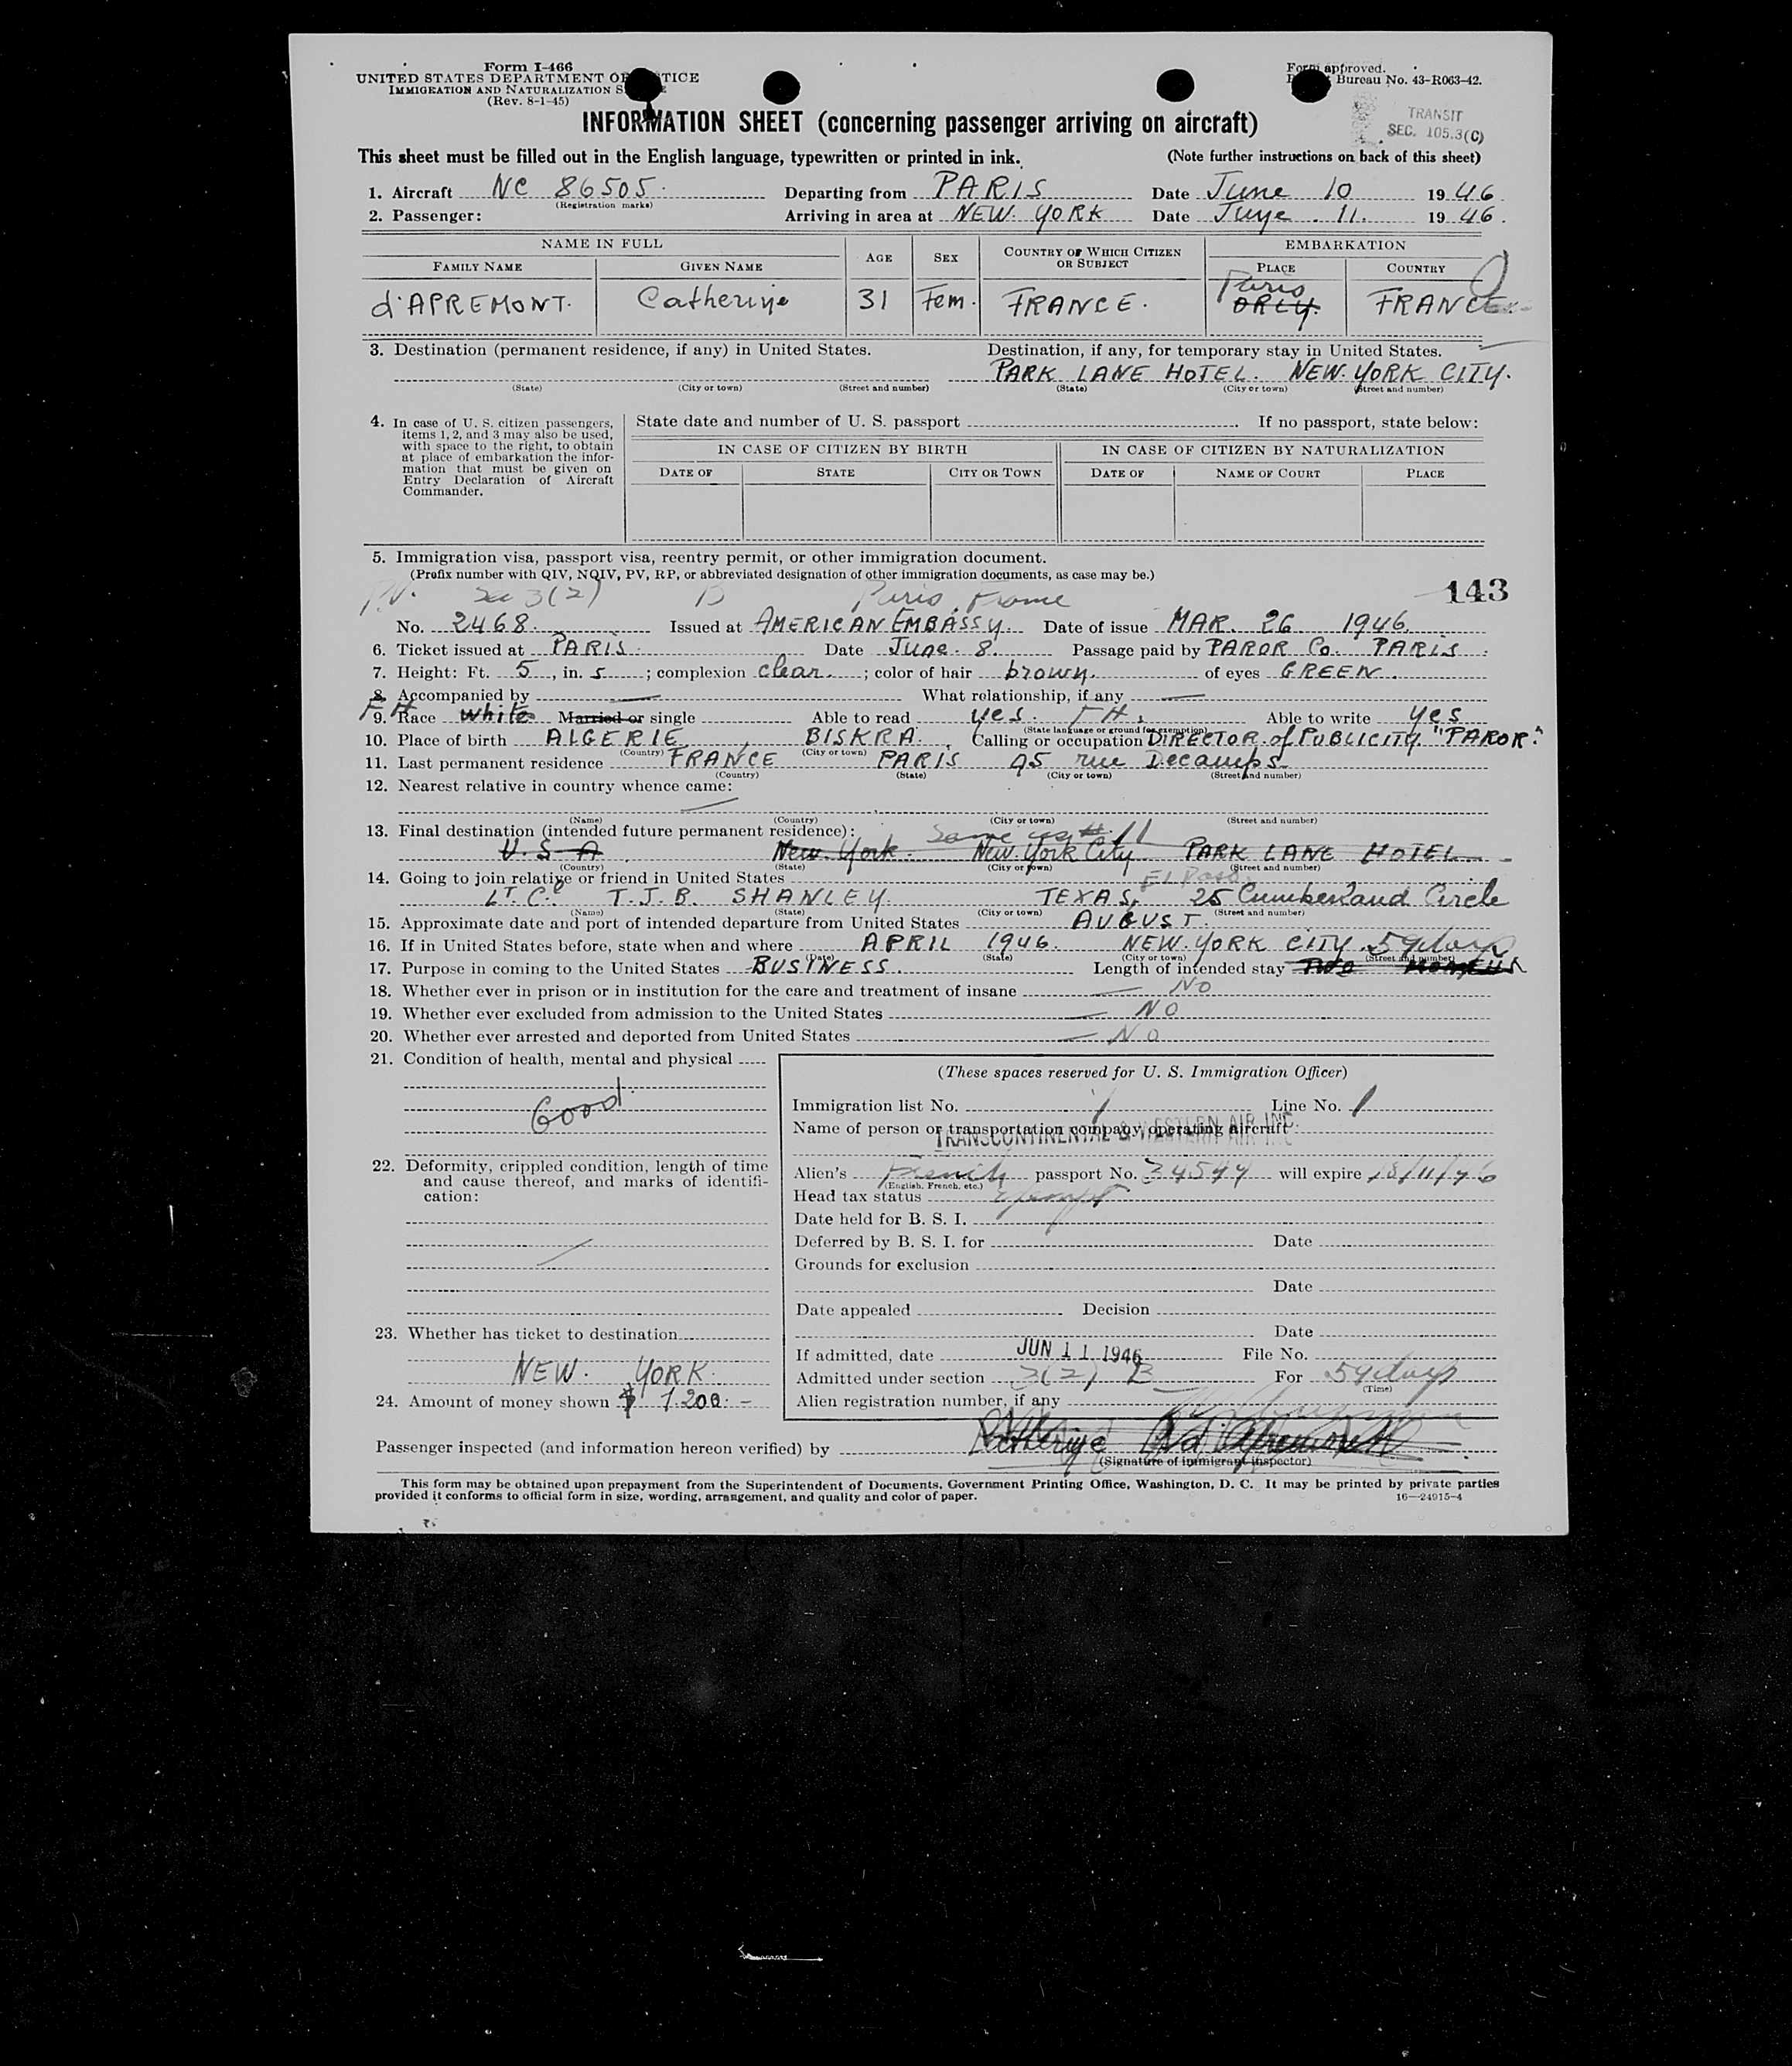 Form I-466
UNITED STATES DEPARTMENT OF JUSTICE
IMMIGRATION AND NATURALIZATION S
(Rev. 8-1-45)
Form approved.
Bureau No. 43-R063-42.
TRANSIT
SEC. 105.3(C)
INFORMATION SHEET (concerning passenger arriving on aircraft)
This sheet must be filled out in the English language, typewritten or printed in ink. (Note further instructions on back of this sheet)
1. Aircraft NC 86505. Departing from PARIS Date June 10 1946
(Registration marks)
2. Passenger: Arriving in area at NEW YORK Date June 11. 1946.
NAME IN FULL AGE SEX COUNTRY OF WHICH CITIZEN OR SUBJECT EMBARKATION
FAMILY NAME GIVEN NAME PLACE COUNTRY
Paris
d'APREMONT. Catherine 31 Fem. FRANCE. ORLY. FRANCE
3. Destination (permanent residence, if any) in United States. Destination, if any, for temporary stay in United States.
PARK LANE HOTEL. NEW YORK CITY.
(State) (City or town) (Street and number) (State) (City or town) (Street and number)
4. In case of U. S. citizen passengers, items 1, 2, and 3 may also be used, with space to the right, to obtain at place of embarkation the information that must be given on Entry Declaration of Aircraft Commander.
State date and number of U. S. passport If no passport, state below:
IN CASE OF CITIZEN BY BIRTH IN CASE OF CITIZEN BY NATURALIZATION
DATE OF STATE CITY OR TOWN DATE OF NAME OF COURT PLACE
5. Immigration visa, passport visa, reentry permit, or other immigration document.
(Prefix number with QIV, NQIV, PV, RP, or abbreviated designation of other immigration documents, as case may be.)
143
P.V. Sec 3(2) B Paris, France
No. 2468. Issued at AMERICAN EMBASSY. Date of issue MAR. 26 1946.
6. Ticket issued at PARIS. Date June 8. Passage paid by PAROR Co. PARIS.
7. Height: Ft. 5, in. 5; complexion clear.; color of hair brown. of eyes GREEN.
8. Accompanied by — What relationship, if any —
9. Race white Married or single Able to read yes. FH. Able to write yes
(State language or ground for exemption)
10. Place of birth ALGERIE, BISKRA. Calling or occupation DIRECTOR of PUBLICITY "PAROR."
(Country) (City or town)
11. Last permanent residence FRANCE PARIS 95 rue Decamps
(Country) (State) (City or town) (Street and number)
12. Nearest relative in country whence came:
(Name) (Country) (City or town) (Street and number)
13. Final destination (intended future permanent residence): Same as # 11
U.S.A New York. New York City PARK LANE HOTEL
(Country) (State) (City or town) (Street and number)
14. Going to join relative or friend in United States El Paso
LT. Cl T.J.B. SHANLEY. TEXAS, 25 Cumberland Circle
(Name) (State) (City or town) (Street and number)
15. Approximate date and port of intended departure from United States AUGUST.
16. If in United States before, state when and where APRIL 1946. NEW YORK CITY. 59 days
(Date) (State) (City or town) (Street and number)
17. Purpose in coming to the United States BUSINESS. Length of intended stay TWO MONTHS
18. Whether ever in prison or in institution for the care and treatment of insane — NO
19. Whether ever excluded from admission to the United States — NO
20. Whether ever arrested and deported from United States — NO
21. Condition of health, mental and physical
Good.
22. Deformity, crippled condition, length of time and cause thereof, and marks of identification:
23. Whether has ticket to destination
NEW. YORK.
24. Amount of money shown $ 1.200.-
(These spaces reserved for U. S. Immigration Officer)
Immigration list No. 1 Line No. 1
Name of person or transportation company operating aircraft
TRANSCONTINENTAL & WESTERN AIR INC.
Alien's French passport No. 34544 will expire 18/11/46
(English, French, etc.)
Head tax status exempt
Date held for B. S. I.
Deferred by B. S. I. for Date
Grounds for exclusion
Date
Date appealed Decision
Date
If admitted, date JUN 11 1946 File No.
Admitted under section 3(2) B For 59 days
(Time)
Alien registration number, if any
Passenger inspected (and information hereon verified) by Catherine d'Apremont
(Signature of immigrant inspector)
This form may be obtained upon prepayment from the Superintendent of Documents, Government Printing Office, Washington, D. C. It may be printed by private parties
provided it conforms to official form in size, wording, arrangement, and quality and color of paper. 16—24915-4